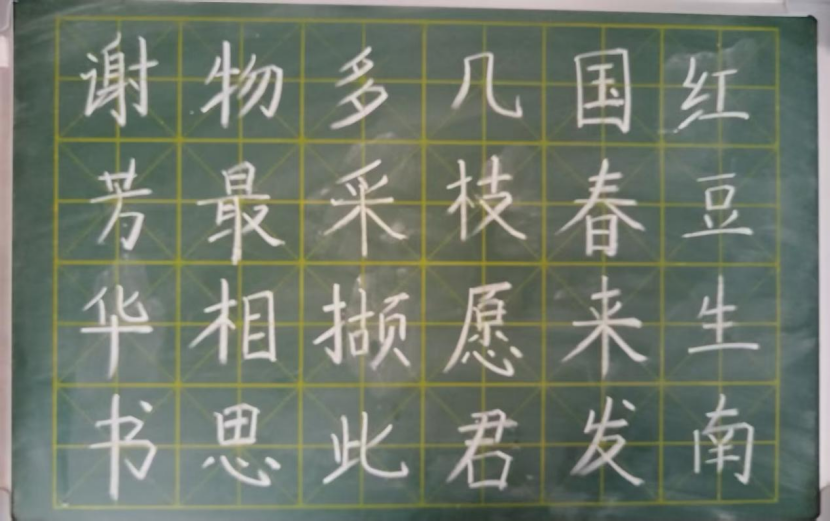 红豆生南
国春来发
几枝愿君
多采撷此
物最相思
谢芳华书